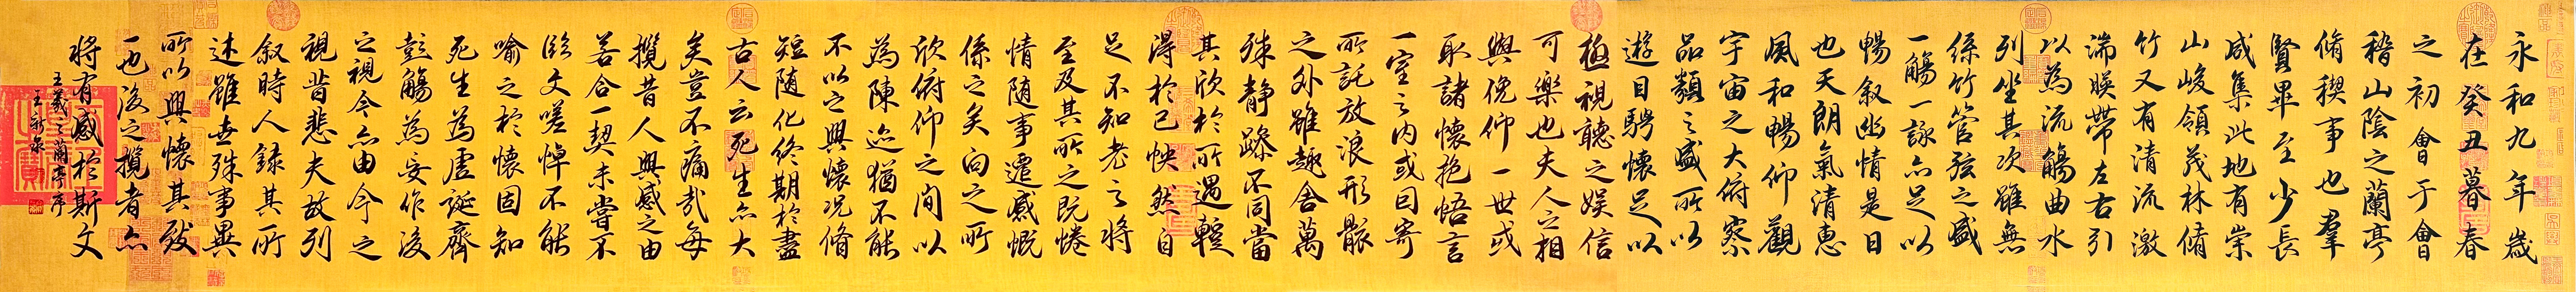 永和九年歲
在癸丑暮春
之初會于會
稽山陰之蘭亭
脩稧事也羣
賢畢至少長
咸集此地有崇
山峻領茂林脩
竹又有清流激
湍暎帶左右引
以為流觴曲水
列坐其次雖無
絲竹管弦之盛
一觴一詠亦足以
暢叙幽情是日
也天朗氣清惠
風和暢仰觀
宇宙之大俯察
品類之盛所以
遊目騁懷足以
極視聽之娛信
可樂也夫人之相
與俛仰一世或
取諸懷抱悟言
一室之內或因寄
所託放浪形骸
之外雖趣舍萬
殊靜躁不同當
其欣於所遇蹔
得於己怏然自
足不知老之將
至及其所之既惓
情隨事遷感慨
係之矣向之所
欣俯仰之間以
為陳迹猶不能
不以之興懷況脩
短隨化終期於盡
古人云死生亦大
矣豈不痛哉每
攬昔人興感之由
若合一契未嘗不
臨文嗟悼不能
喻之於懷固知
死生為虛誕齊
彭觴為妄作後
之視今亦由今之
視昔悲夫故列
叙時人錄其所
述雖世殊事異
所以興懷其致
一也後之攬者亦
將有感於斯文
王羲之蘭亭序